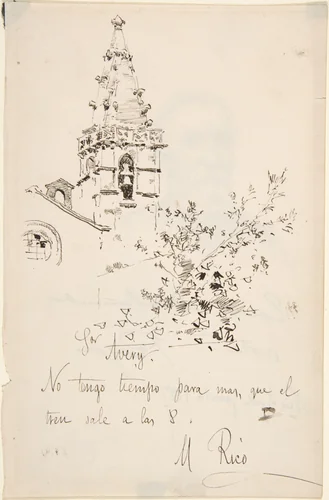 Sor Avery,
No tengo tiempo para mas, que el
tren sale a las 8.
M Rico